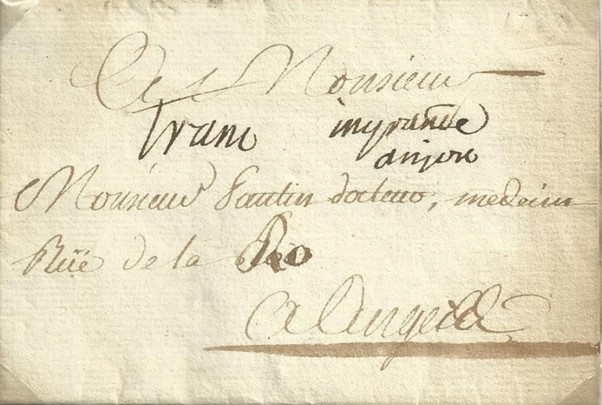 A Monsieur
franc ingrande
anjou
Monsieur Pantin docteur, medecin
Rüe de la
A Angers